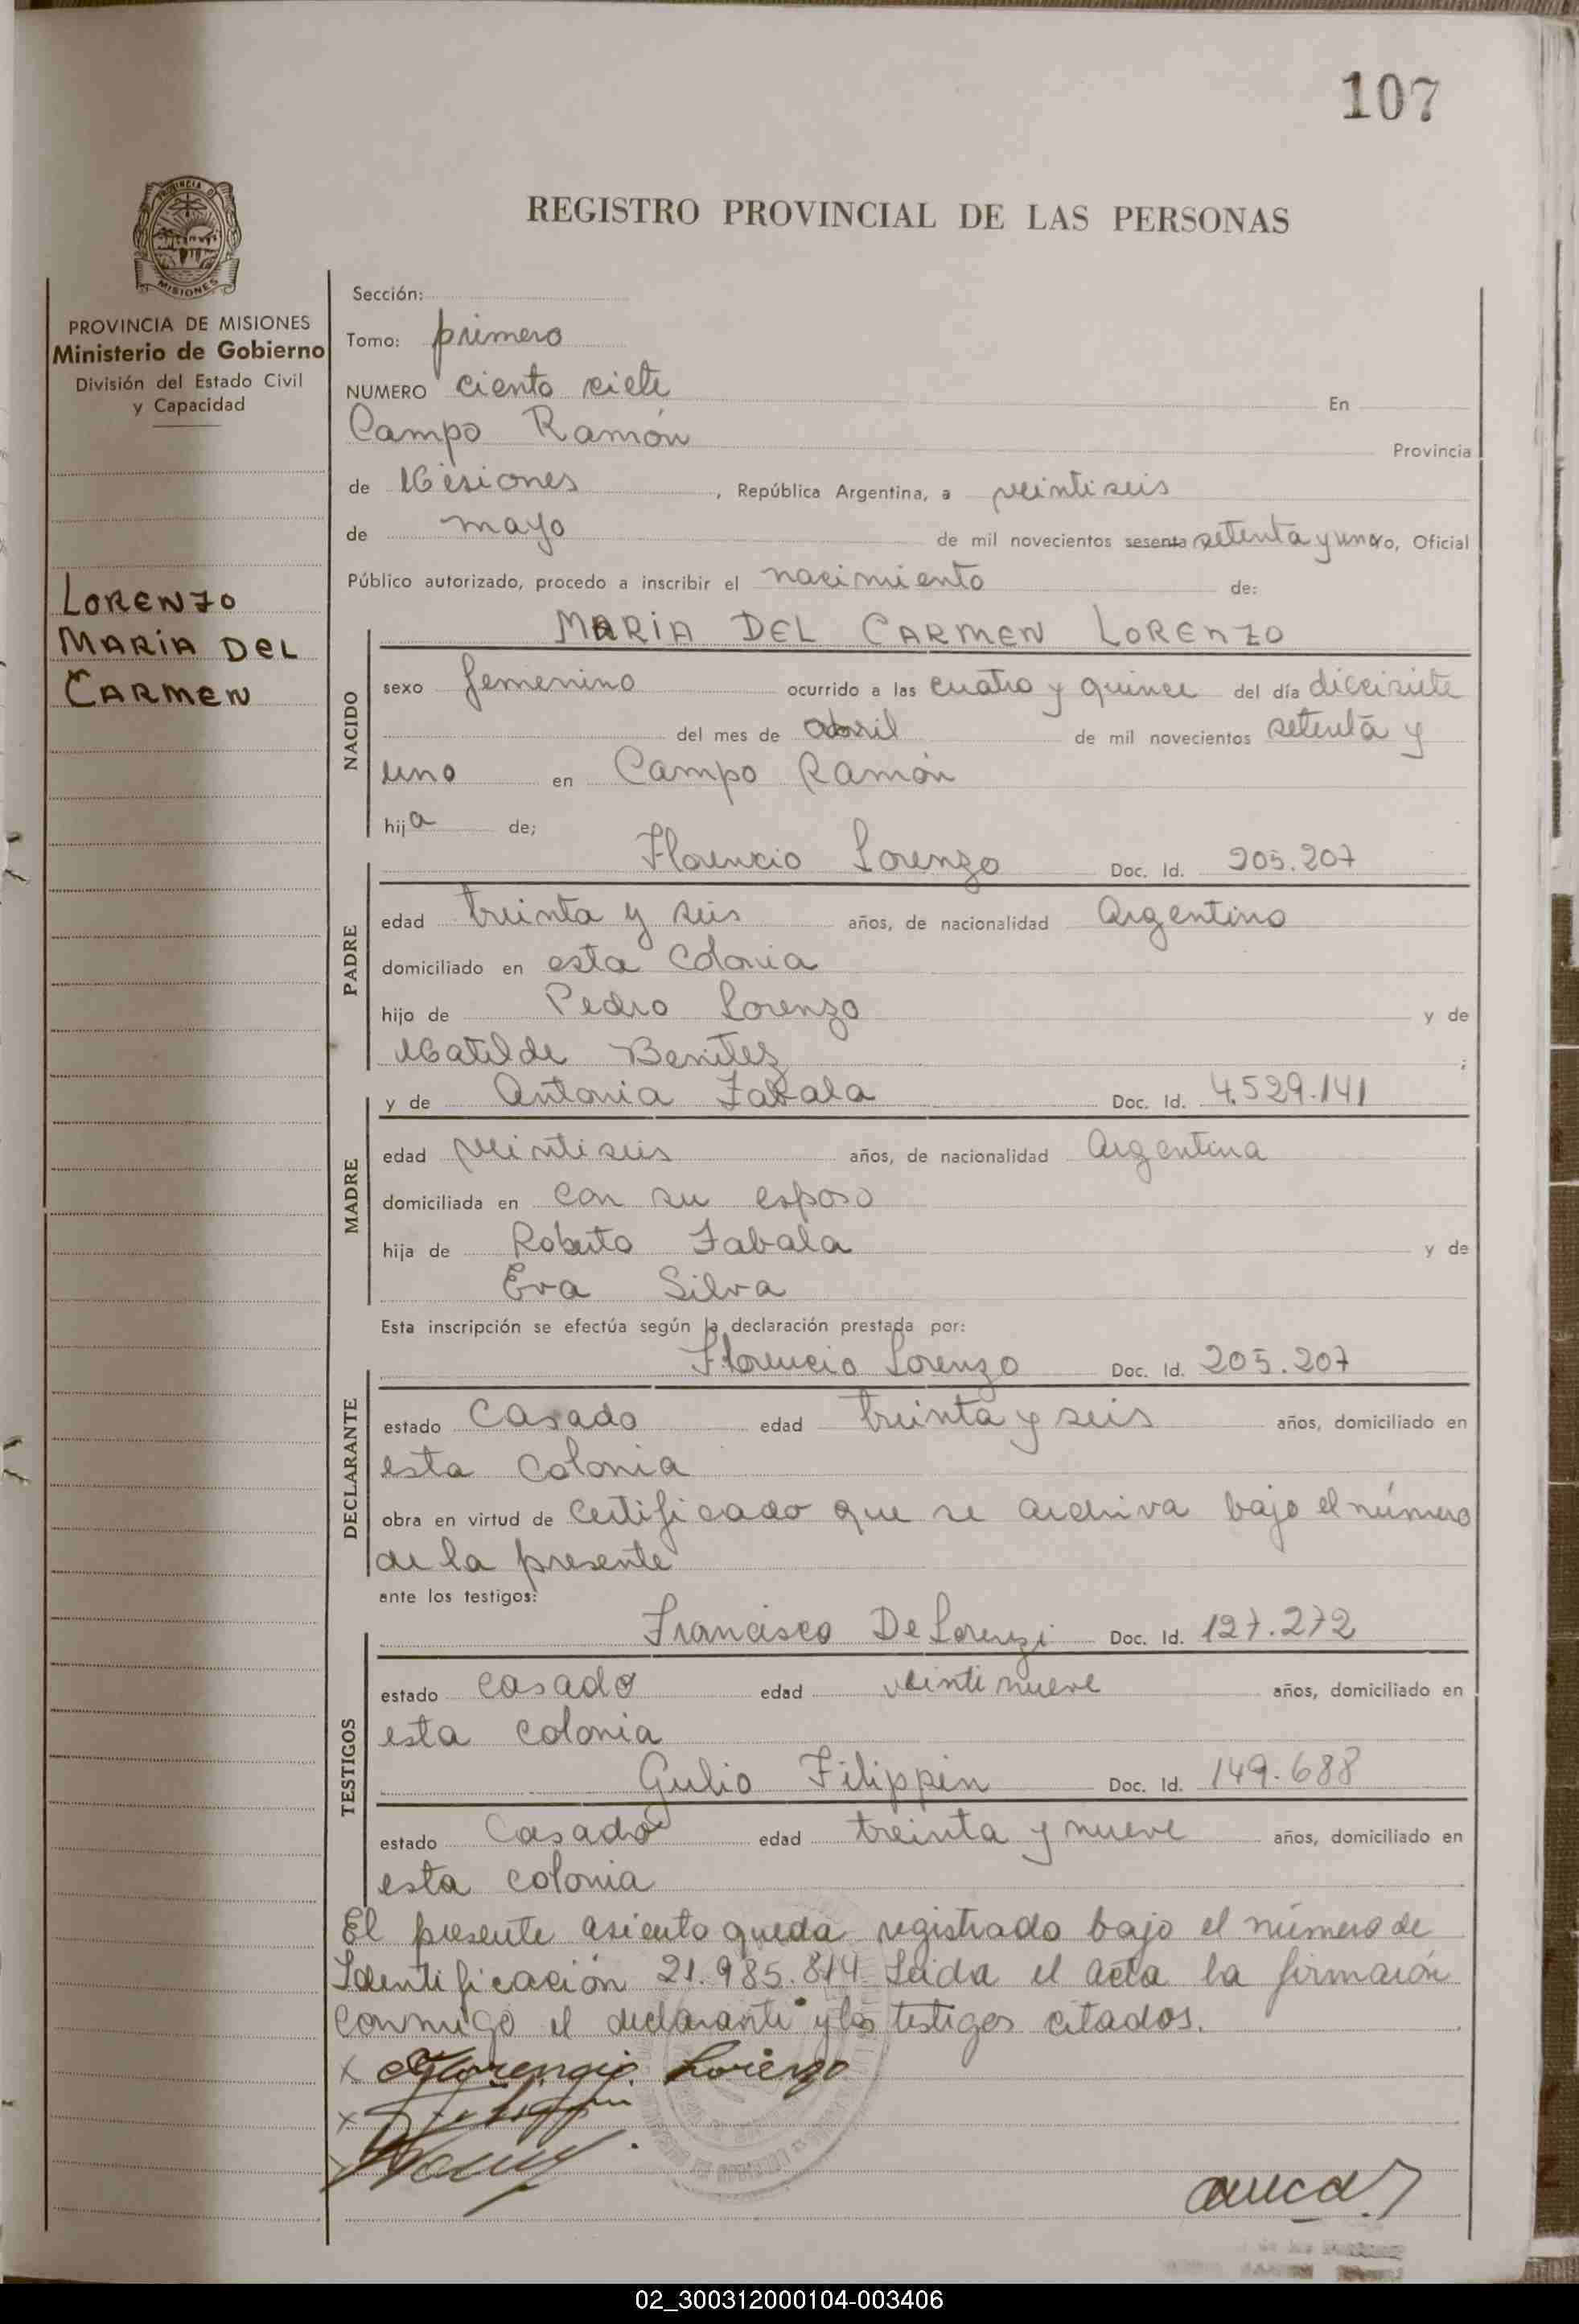 107
REGISTRO PROVINCIAL DE LAS PERSONAS
PROVINCIA DE MISIONES
Ministerio de Gobierno
División del Estado Civil
y Capacidad
LORENZO
MARIA DEL
CARMEN
Sección:
Tomo: primero
NUMERO ciento siete En
Campo Ramón Provincia
de Misiones, República Argentina, a veintiseis
de mayo de mil novecientos sesenta setenta y uno yo, Oficial
Público autorizado, procedo a inscribir el nacimiento de:
MARIA DEL CARMEN LORENZO
NACIDO
sexo femenino ocurrido a las cuatro y quince del día diecisiete
del mes de abril de mil novecientos setenta y
uno en Campo Ramón
hija de;
Florencio Lorenzo Doc. Id. 205.207
PADRE
edad treinta y seis años, de nacionalidad Argentino
domiciliado en esta Colonia
hijo de Pedro Lorenzo y de
Matilde Benitez ;
y de Antonia Zabala Doc. Id. 4.529.141
MADRE
edad veintiseis años, de nacionalidad Argentina
domiciliada en con su esposo
hija de Roberto Zabala y de
Eva Silva
Esta inscripción se efectúa según la declaración prestada por:
Florencio Lorenzo Doc. Id. 205.207
DECLARANTE
estado Casado edad treinta y seis años, domiciliado en
esta Colonia
obra en virtud de Certificado que se archiva bajo el número
de la presente
ante los testigos:
Francisco De Lorenzi Doc. Id. 127.272
TESTIGOS
estado casado edad veintinueve años, domiciliado en
esta colonia
Gulio Filippin Doc. Id. 149.688
estado Casado edad treinta y nueve años, domiciliado en
esta colonia
El presente asiento queda registrado bajo el número de
Identificación 21.985.814 Leida el acta la firmarón
conmigo el declarante y los testigos citados.
x Florencio Lorenzo
x
02_300312000104-003406